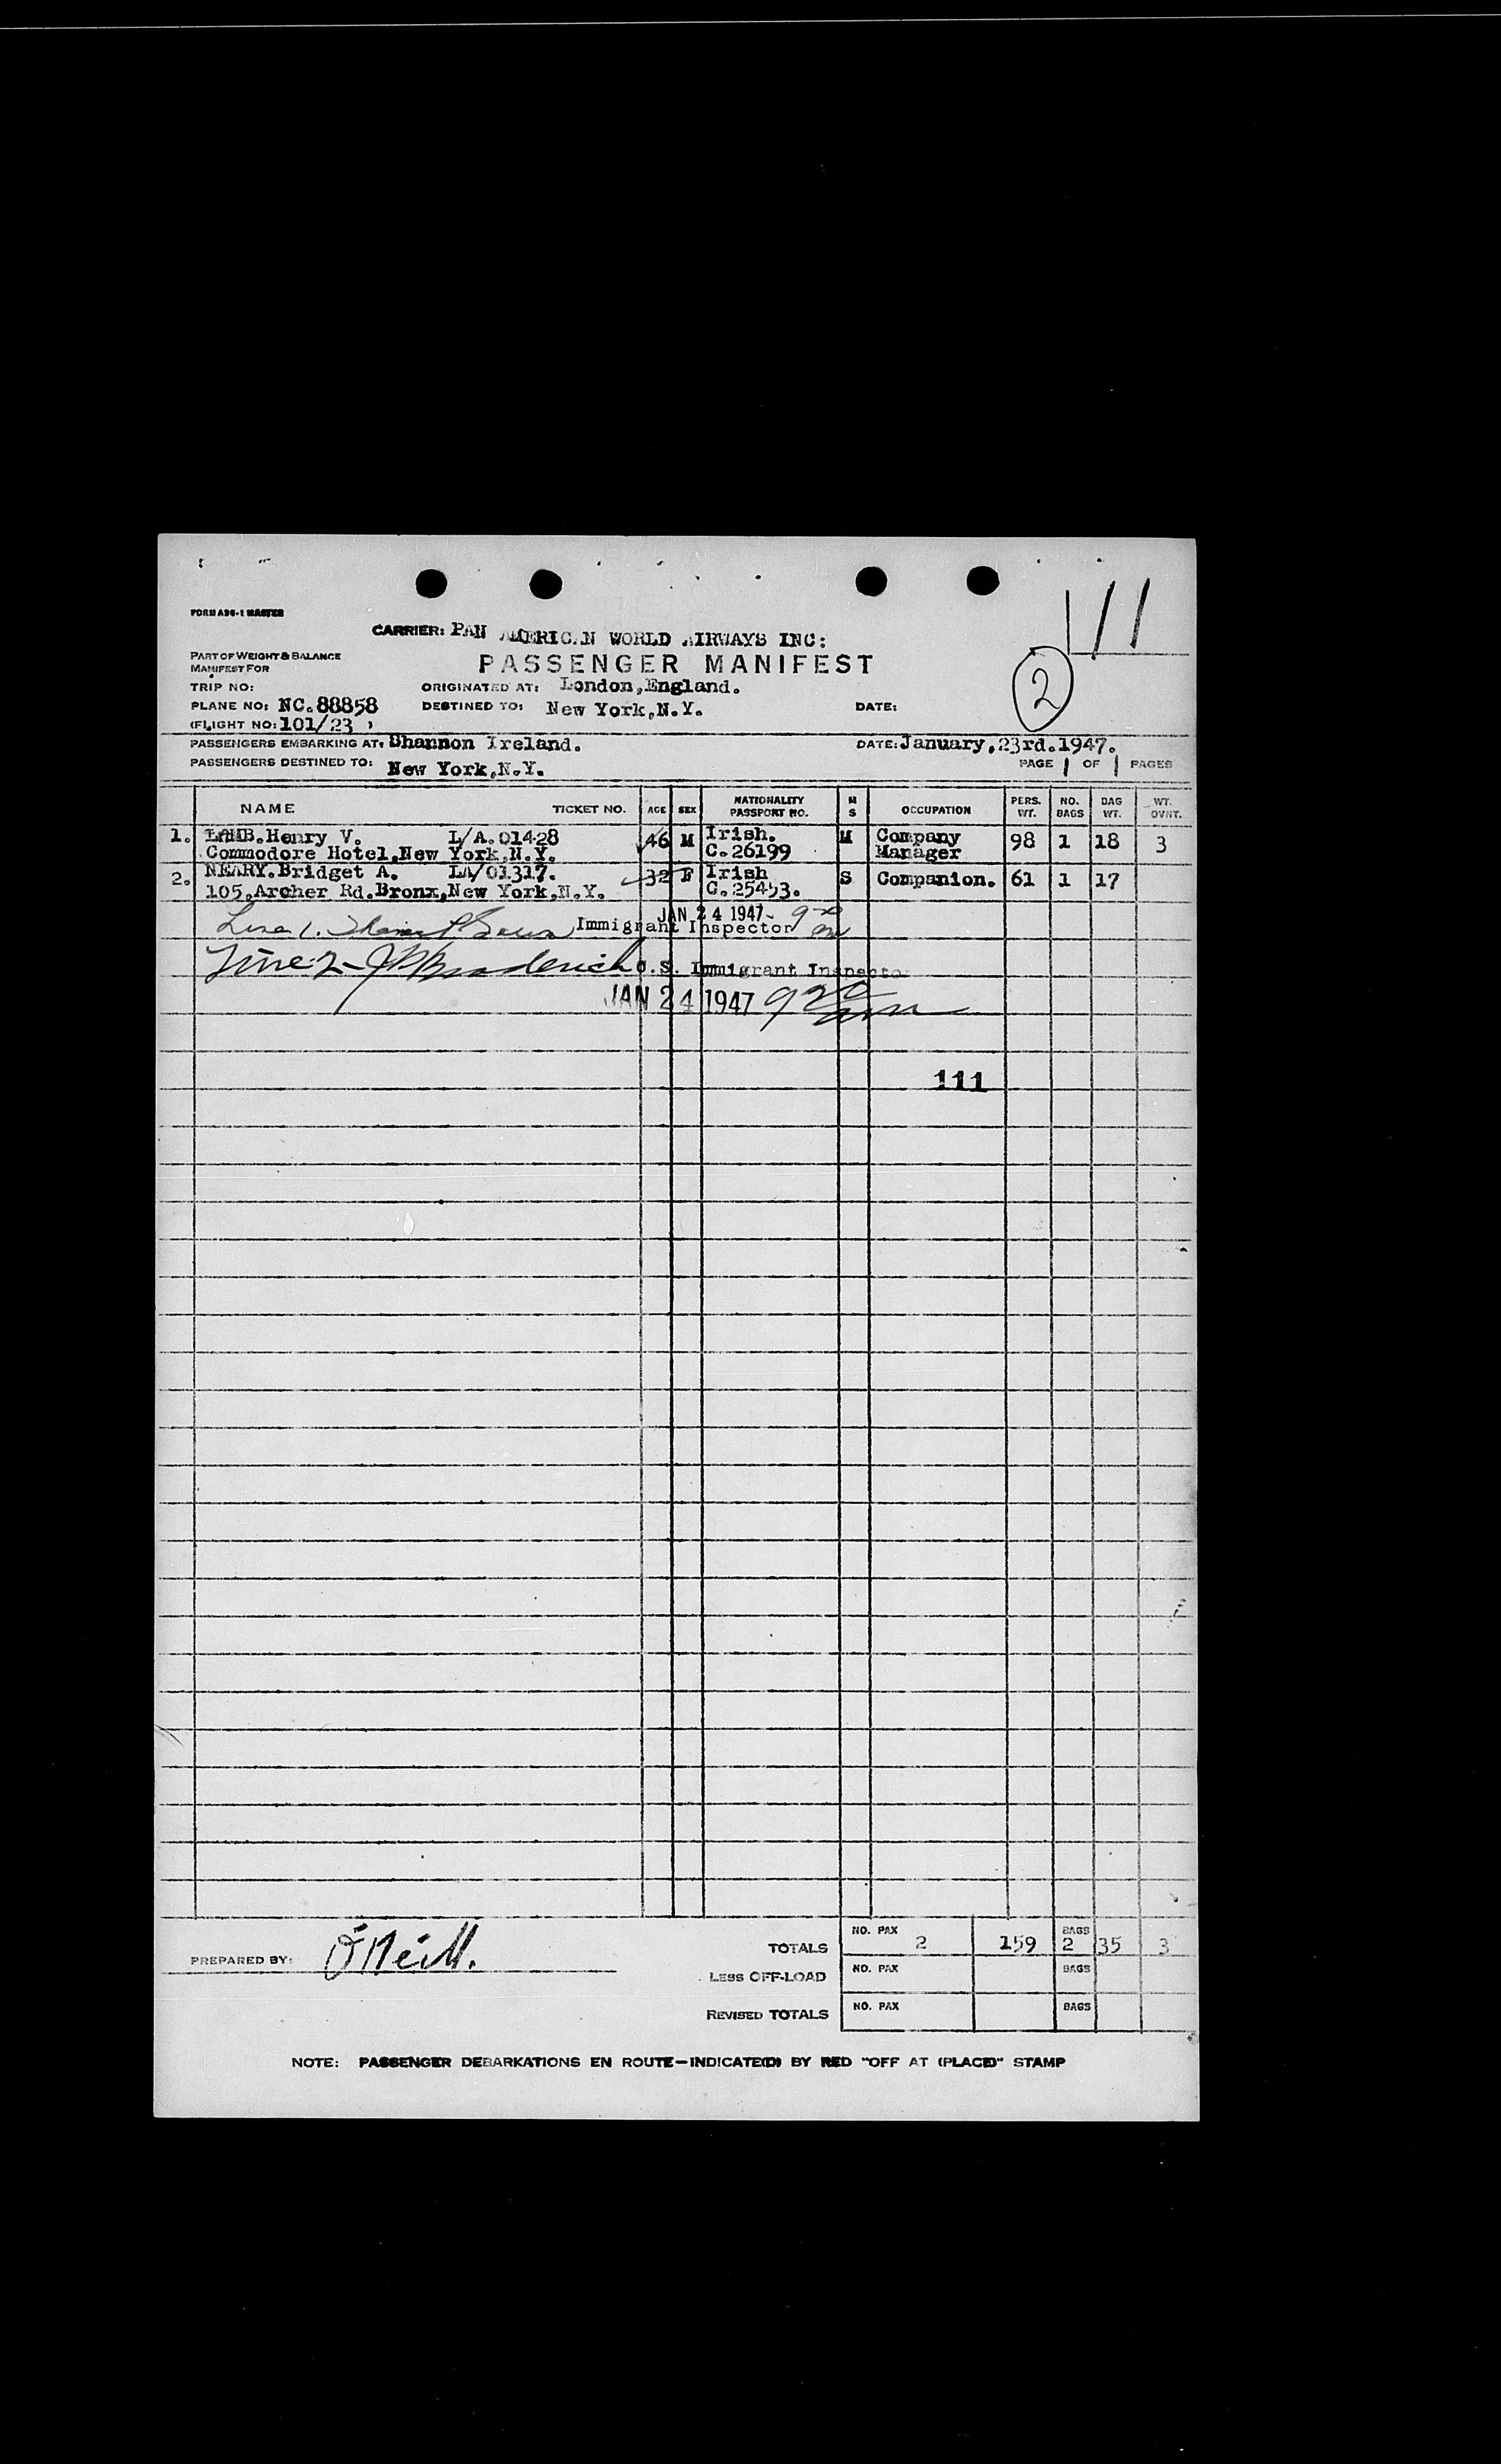 111
FORM A96-1 MASTER
CARRIER: PAN AMERICAN WORLD AIRWAYS INC:
PART OF WEIGHT & BALANCE
MANIFEST FOR
PASSENGER MANIFEST
2
TRIP NO: ORIGINATED AT: London,England.
PLANE NO: NC.88858 DESTINED TO: New York,N.Y. DATE:
(FLIGHT NO: 101/23 )
PASSENGERS EMBARKING AT: Shannon Ireland. DATE: January,23rd.1947.
PASSENGERS DESTINED TO: New York,N.Y. PAGE 1 OF 1 PAGES
NAME TICKET NO. AGE SEX NATIONALITY PASSPORT NO. M S OCCUPATION PERS. WT. NO. BAGS BAG WT. WT. OVNT.
1. LAMB.Henry V. L/A.01428 46 M Irish. C.26199 M Company Manager 98 1 18 3
Commodore Hotel,New York,N.Y.
2. NEARY.Bridget A. LA/01317. 32 F Irish C.25453. S Companion. 61 1 17
105,Archer Rd.Bronx,New York,N.Y.
JAN 24 1947
Line 1. Immigrant Inspector
Line 2- J P Broderick U.S. Immigrant Inspector
JAN 24 1947 9 20 am
111
PREPARED BY: O'Neill.
TOTALS NO. PAX 2 159 BAGS 2 35 3
LESS OFF-LOAD NO. PAX BAGS
REVISED TOTALS NO. PAX BAGS
NOTE: PASSENGER DEBARKATIONS EN ROUTE—INDICATE(D) BY RED "OFF AT (PLACE)" STAMP